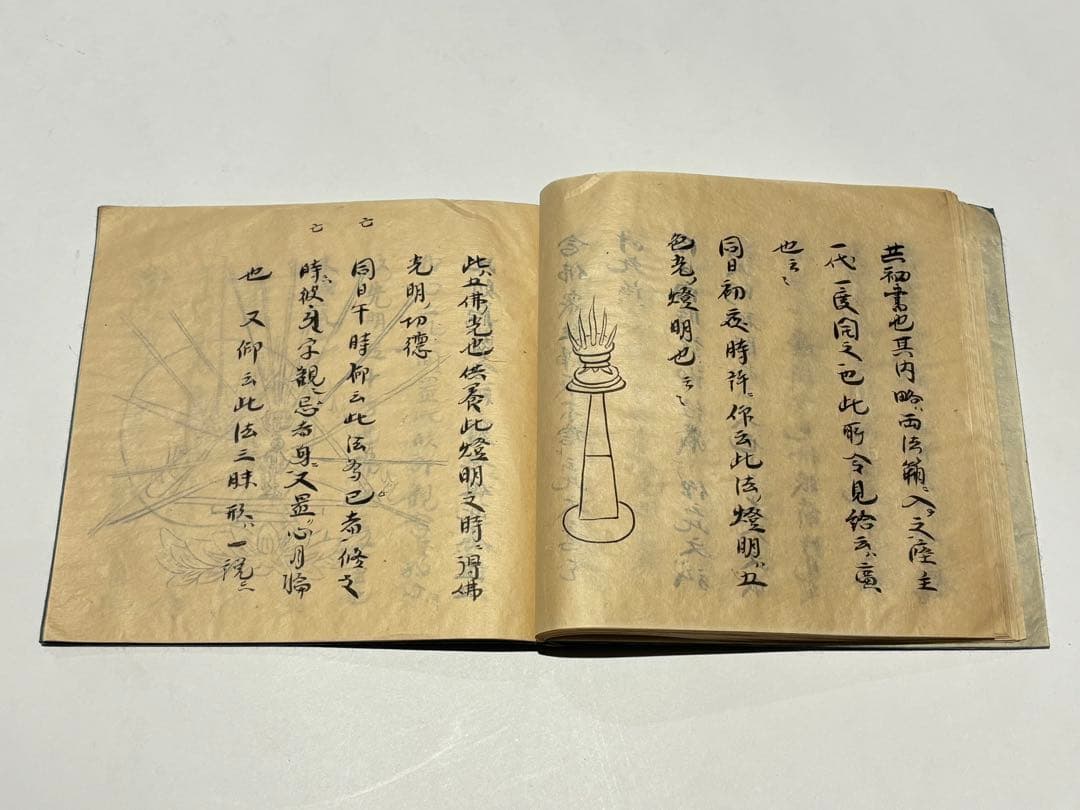 共初書也其内略両法箱入之座主
一代一度同之也此所令見給云廣
也云々
同日初夜時許仰云此法燈明五
色光燈明也云々
此五佛光也供養此燈明之時得佛
光明功徳
同日午時仰云此法為已者修之
時彼字観忌者身又置心月輪
也 又仰云此法三昧形一説